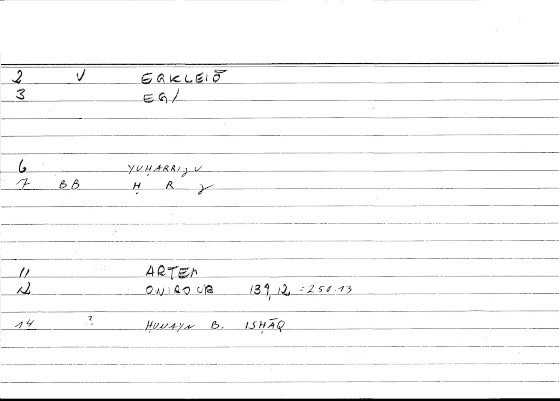 2 V EGKLEIŌ
3 EG/
6 YUḤARRIǧU
7 BB Ḥ R ǧ
11 ARTEM
12 ONIROCR 139,12 = 250.13
14 ? ḤUNAYN B. ISḤĀQ